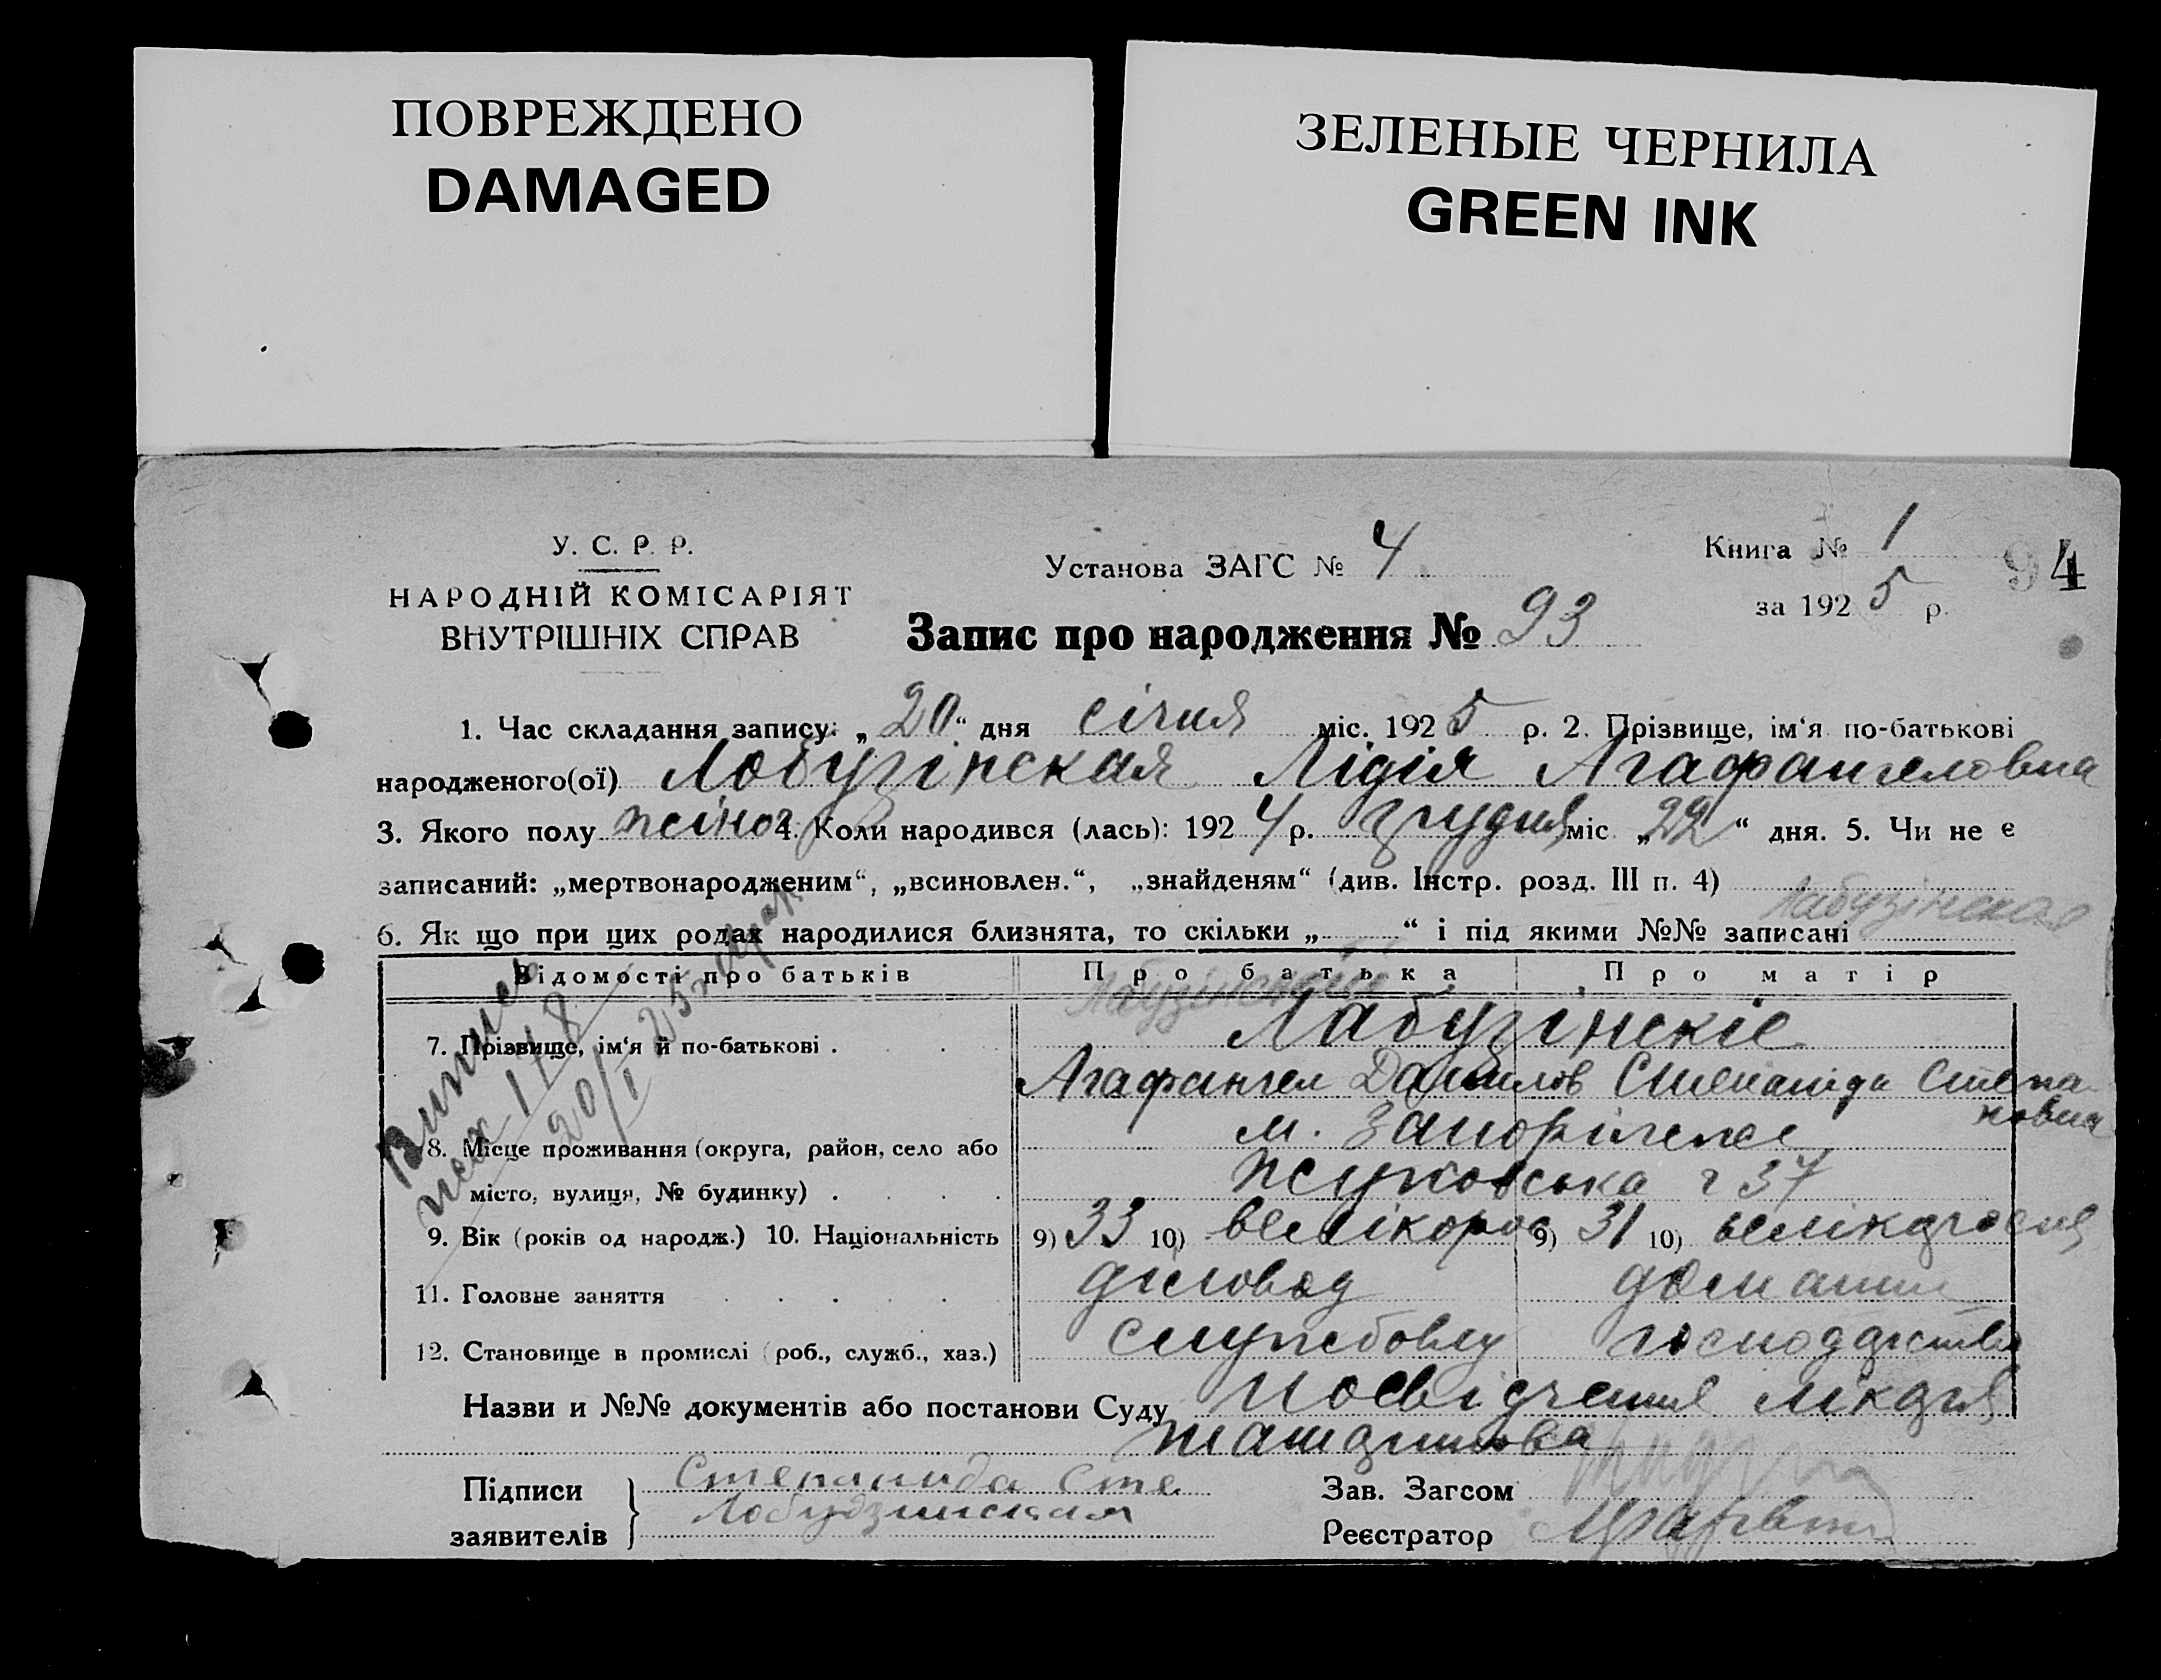 ПОВРЕЖДЕНО
DAMAGED
ЗЕЛЕНЫЕ ЧЕРНИЛА
GREEN INK
У. С. Р. Р.
НАРОДНІЙ КОМІСАРІЯТ
ВНУТРІШНІХ СПРАВ
Установа ЗАГС № 4
Книга № 1
за 1925 р.
94
Запис про народження № 93
1. Час складання запису: „20“ дня січня міс. 1925 р. 2. Прізвище, ім‘я по-батькові
народженого(ої) Лобузінская Лідія Агафангеловна
3. Якого полу жіноч 4. Коли народився (лась): 1924 р. грудня міс „22“ дня. 5. Чи не є
записаний: „мертвонародженим“, „всиновлен.“, „знайденям“ (див. Інстр. розд. III п. 4)
Лабузінская
6. Як що при цих родах народилися близнята, то скільки „ “ і під якими №№ записані
Відомості про батьків Про батька Про матір
Лабузінський
7. Прізвище, ім‘я й по-батькові . Лабузінскіе
Агафангел Данилов Степаніда Степановна
8. Місце проживання (округа, район, село або м. Запоріжже
місто, вулиця, № будинку) . Жуковська 37
9. Вік (років од народж.) 10. Національність 9) 33 10) велікорос 9) 31 10) 
11. Головне заняття діловод домашн
12. Становище в промислі (роб., служб., хаз.) службовец господарство
Назви и №№ документів або постанови Суду посвідчення лікаря
Підписи заявителів
Степанида Сте
Лобудзинская
Зав. Загсом
Реєстратор
20/I 25